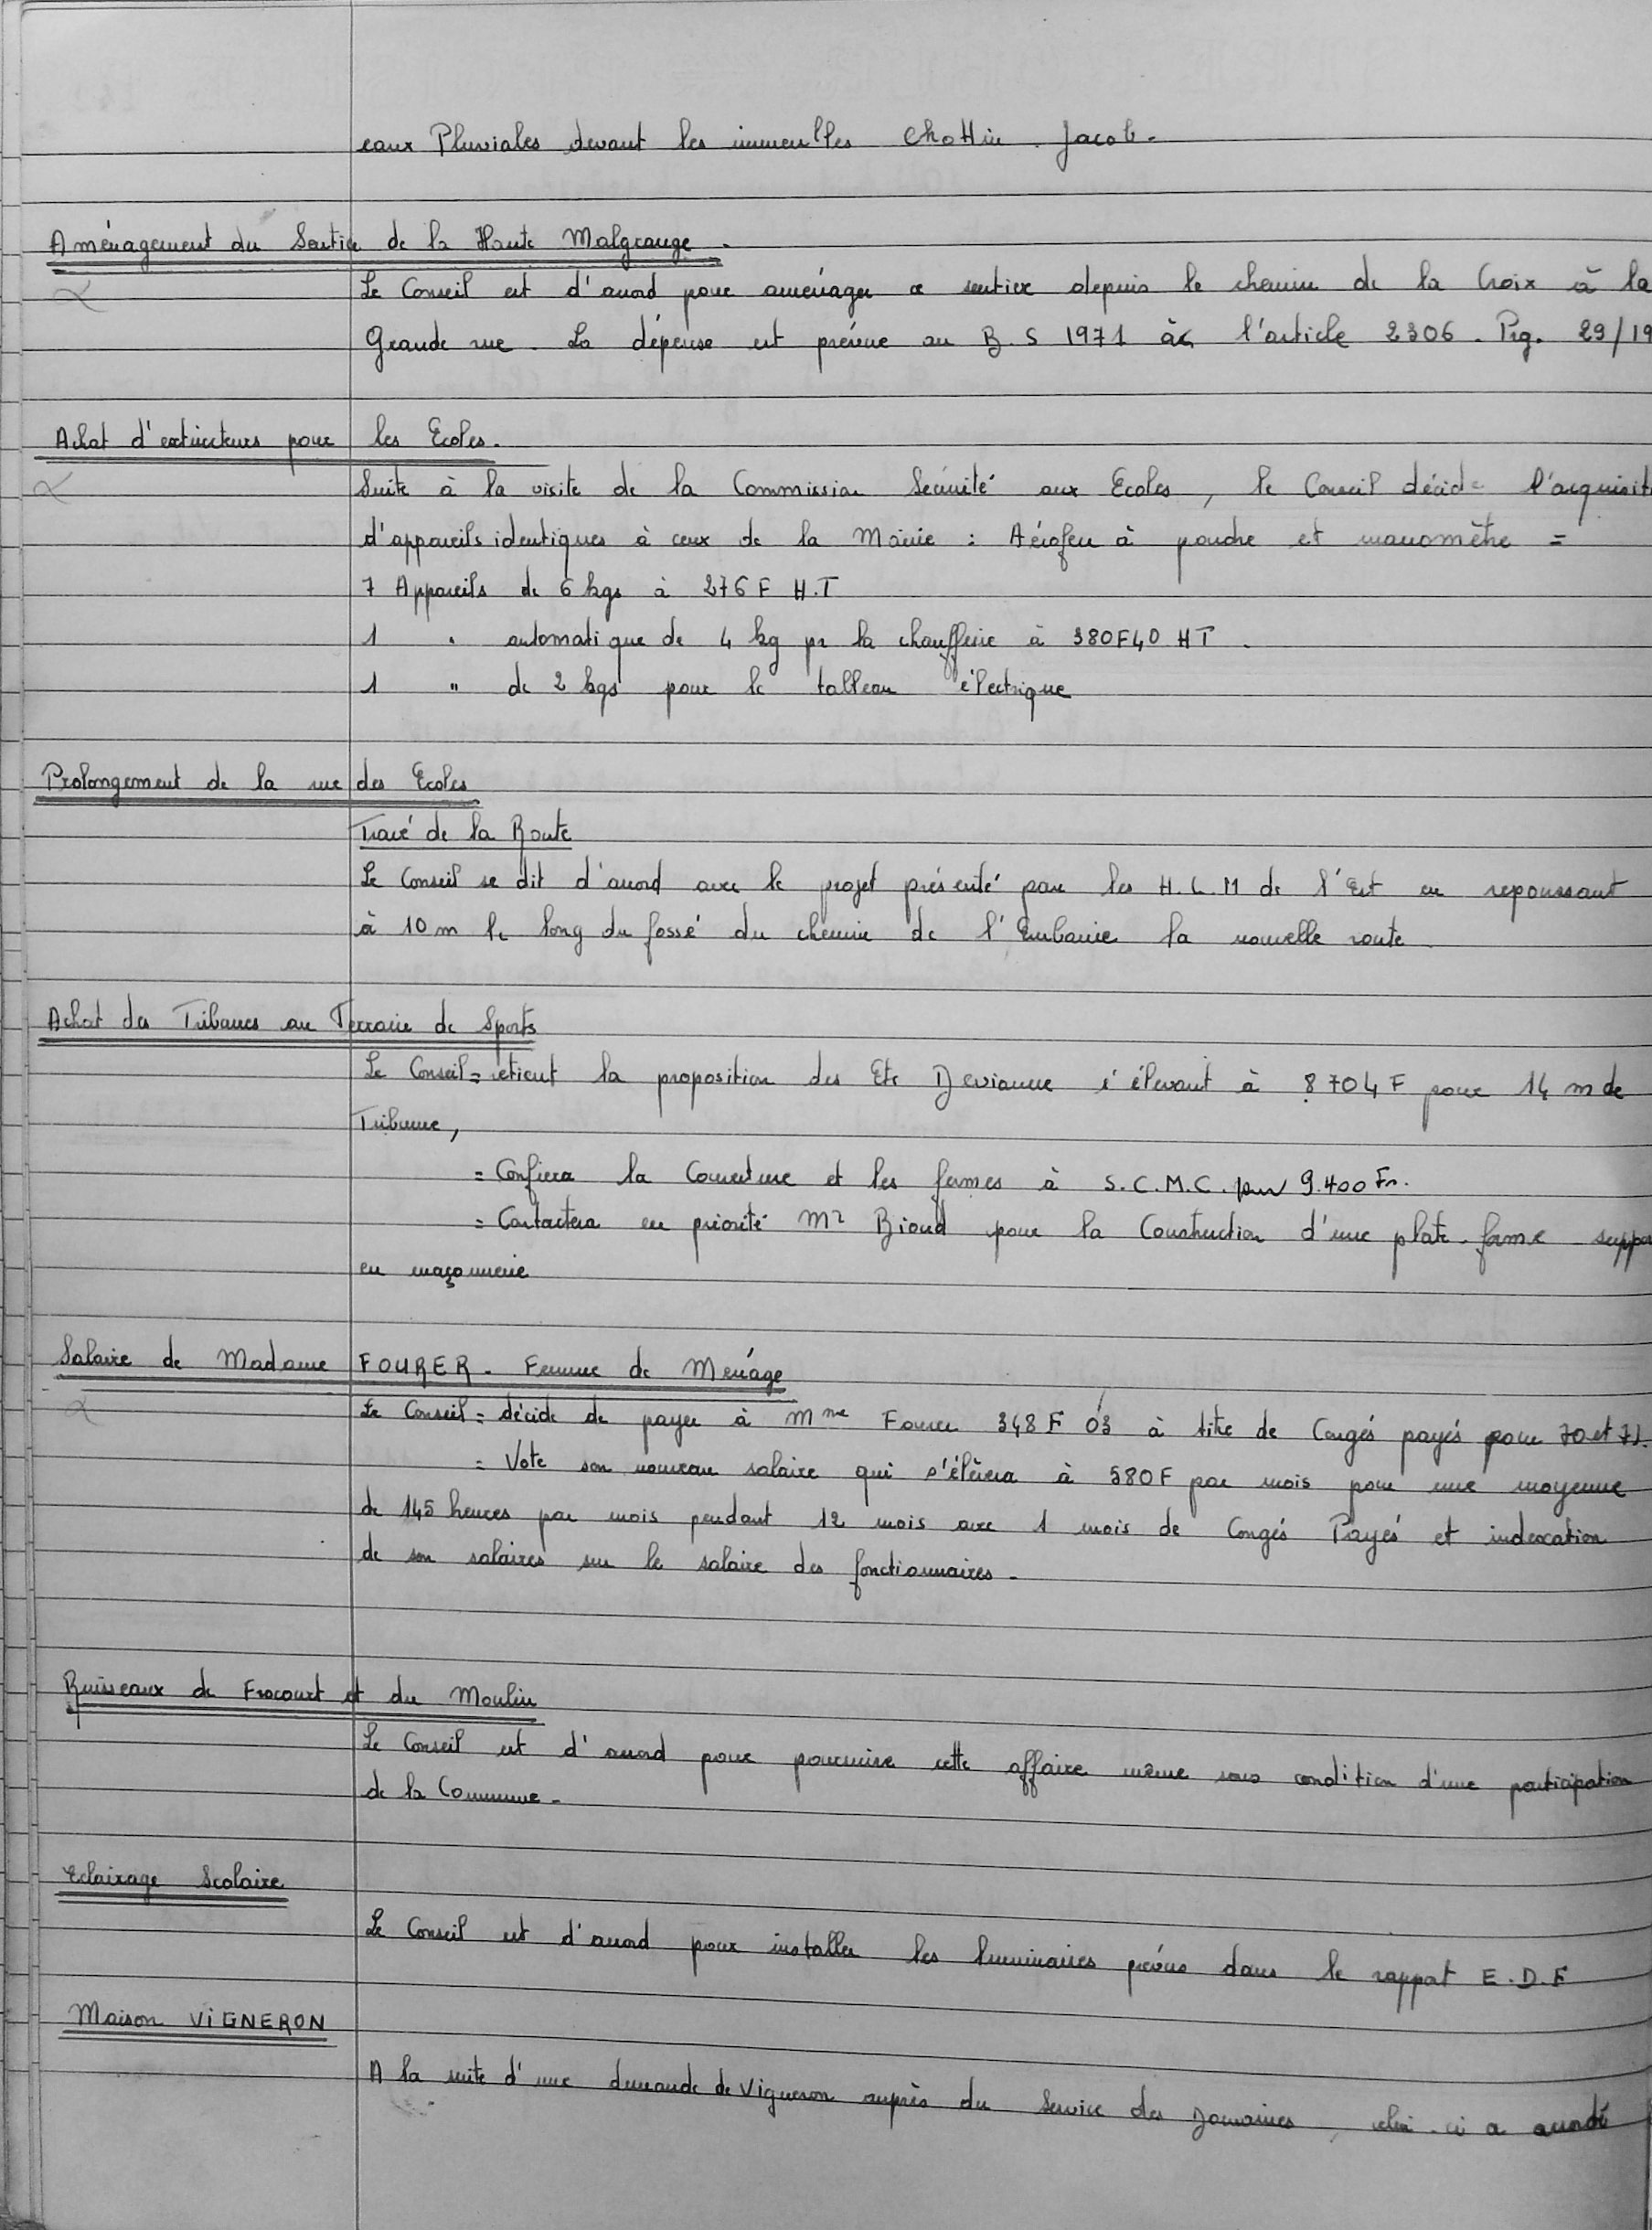 eaux Pluviales devant les immeubles Chottin - Jacob -
Aménagement du Sentier de la Haute Malgrange -
Le Conseil est d'accord pour aménager ce sentier depuis le chemin de la Croix à la
Grande rue. La dépense est prévue au B.S 1971 à l'article 2306. Prg. 29/19
Achat d'extincteurs pour les Ecoles.
Suite à la visite de la Commission Sécurité aux Ecoles, le Conseil décide l'acquisit
d'appareils identiques à ceux de la Mairie : Aérofeu à poudre et manomètre =
7 Appareils de 6 kgs à 276 F H.T
1 " automatique de 4 kg pr la chaufferie à 380F40 HT.
1 " de 2 kgs pour le tableau électrique
Prolongement de la rue des Ecoles
Tracé de la Route
Le Conseil se dit d'accord avec le projet présenté par les H.L.M de l'Est en repoussant
à 10 m le long du fossé du chemin de l'Embanie la nouvelle route.
Achat des Tribunes au Terrain de Sports
Le Conseil = retient la proposition des Ets Devianne s'élevant à 8704 F pour 14 m de
Tribune,
= Confiera la Couverture et les fermes à S.C.M.C. pour 9.400 Fr.
= Contactera en priorité Mr Bioud pour la Construction d'une plate-forme suppo
en maçonnerie
Salaire de Madame FOURER - Femme de Ménage
Le Conseil = décide de payer à Mme Fourer 348 F 03 à titre de Congés payés pour 70 et 71.
= Vote son nouveau salaire qui s'élèvera à 580F par mois pour une moyenne
de 145 heures par mois pendant 12 mois avec 1 mois de Congés Payés et indexation
de son salaires sur le salaire des fonctionnaires -
Ruisseaux de Frocourt et du Moulin
Le Conseil est d'accord pour poursuivre cette affaire même sous condition d'une participation
de la Commune -
Eclairage Scolaire
Le Conseil est d'accord pour installer les luminaires prévus dans le rapport E.D.F
Maison ViGNERON
A la suite d'une demande de Vigneron auprès du Service des Domaines, celui-ci a accordé